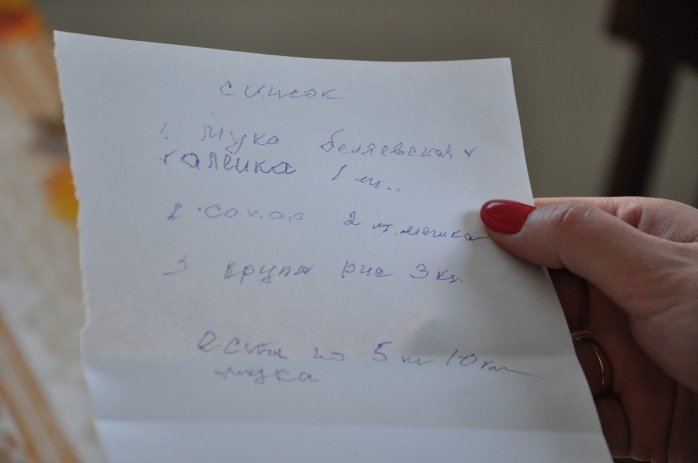 список
1. мука беляевская
алейка 1 м..
2. сохор 2 м. мешка
3 крупа рис 3 кг.
если по 5 кг 10 кг
мука